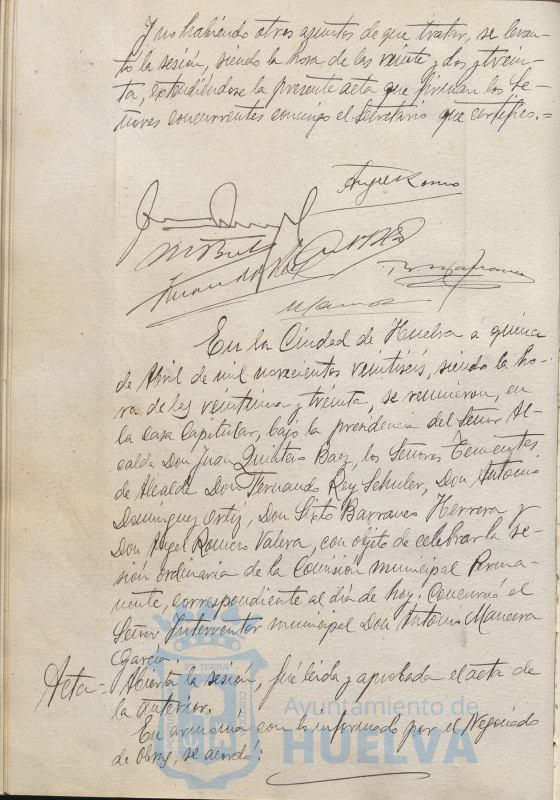 Y no habiendo otros asuntos de que tratar, se levan-
tó la sesión, siendo la hora de las veinte y dos y trein-
ta, extendiéndose la presente acta que firman los Se-
ñores concurrentes conmigo el Secretario que certifico.=
Angel Romero
En la Ciudad de Huelva á quince
de Abril de mil novecientos veintiseis, siendo la ho-
ra de las veintiuna y treinta, se reunieron, en
la Casa Capitular, bajo la presidencia del Señor Al-
calde Don Juan Quintero Baez, los Señores Tenientes
de Alcalde Don Fernando Rey Schuler, Don Antonio
Dominguez Ortiz, Don Sixto Barranco Herrera y
Don Angel Romero Valera, con objeto de celebrar la se-
sión ordinaria de la Comisión municipal Perma-
nente, correspondiente al día de hoy. Concurrió el
Señor Interventor municipal Don Antonio Mancera
Garcia.
Acta - Abierta la sesión, fué leida y aprobada el acta de
la anterior.
En armonia con lo informado por el Negociado
de Obras, se acordó:
Ayuntamiento de
HUELVA